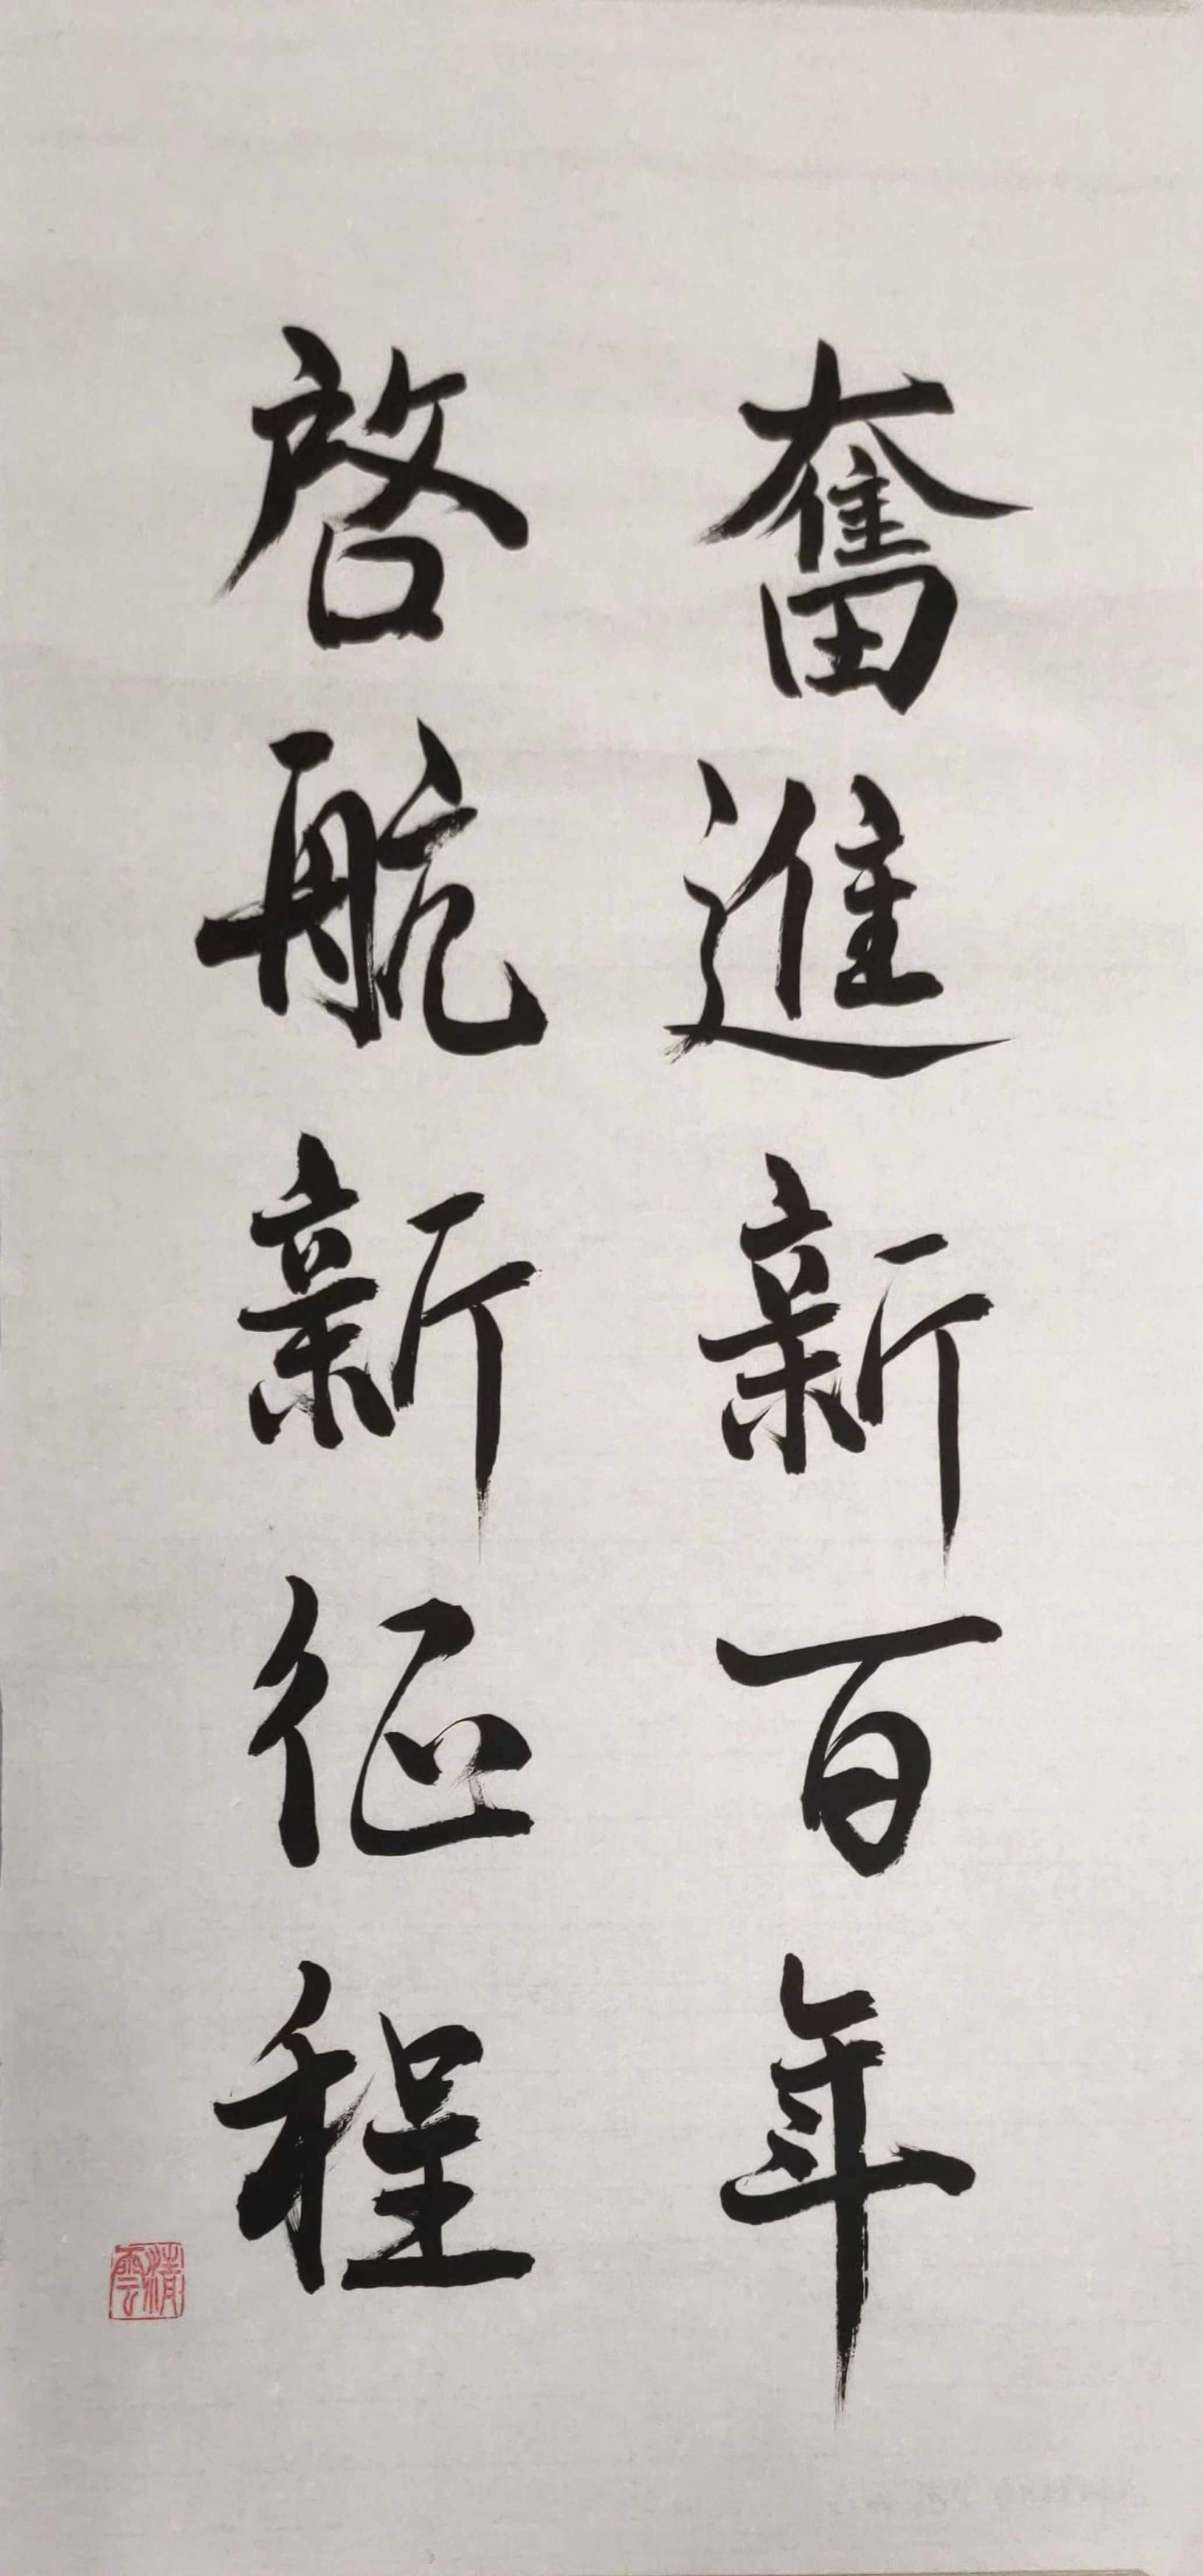 奮進新百年
啓航新征程
清雲